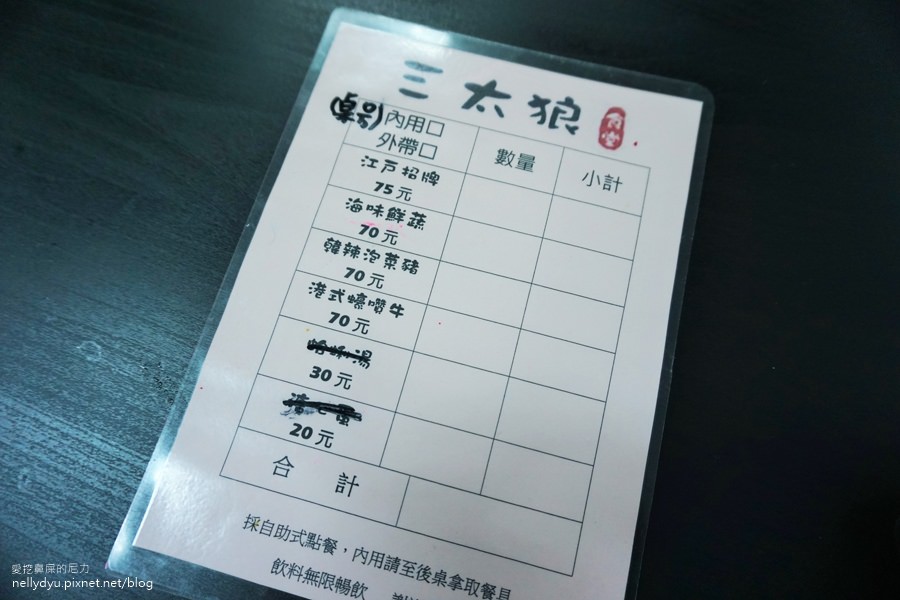 三太狼 食堂
(桌號) 內用口
外帶口
數量
小計
江戶招牌
75元
海味鮮蔬
70元
韓辣泡菜豬
70元
港式蠔嚽牛
70元
30元
20元
合 計
採自助式點餐，內用請至後桌拿取餐具
飲料無限暢飲
愛挖鼻屎的尼力
nellydyu.pixnet.net/blog